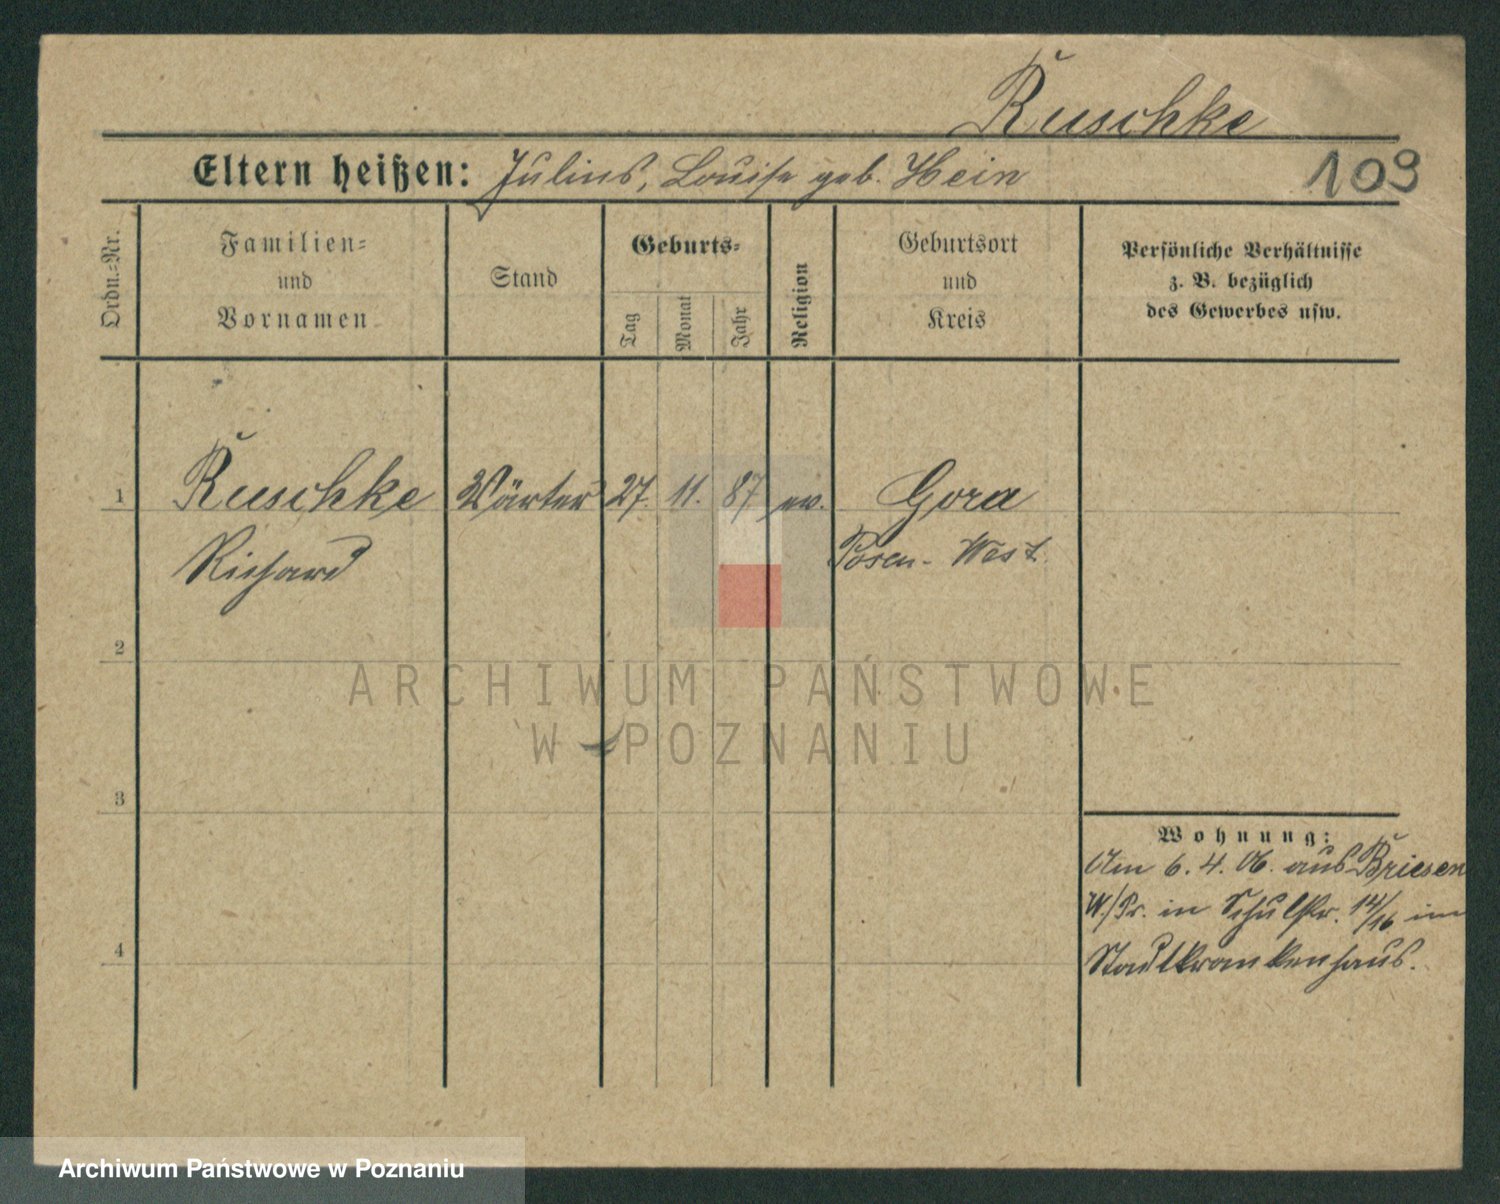 Ruschke
Eltern heißen: Julius, Louise geb. Hein
109
Ordn.-Nr.
Familien-
und
Vornamen
Stand
Geburts-
Tag
Monat
Jahr
Religion
Geburtsort
und
Kreis
Persönliche Verhältnisse
z. B. bezüglich
des Gewerbes usw.
1 Ruschke Wärter 27. 11. 87 ev. Gora
Richard Posen-West.
2
ARCHIWUM PAŃSTWOWE
W POZNANIU
3
Wohnung:
Am 6. 4. 06. aus Briesen
W./Pr. in Schulstr. 14/16 im
4
Stadtkrankenhaus.
Archiwum Państwowe w Poznaniu